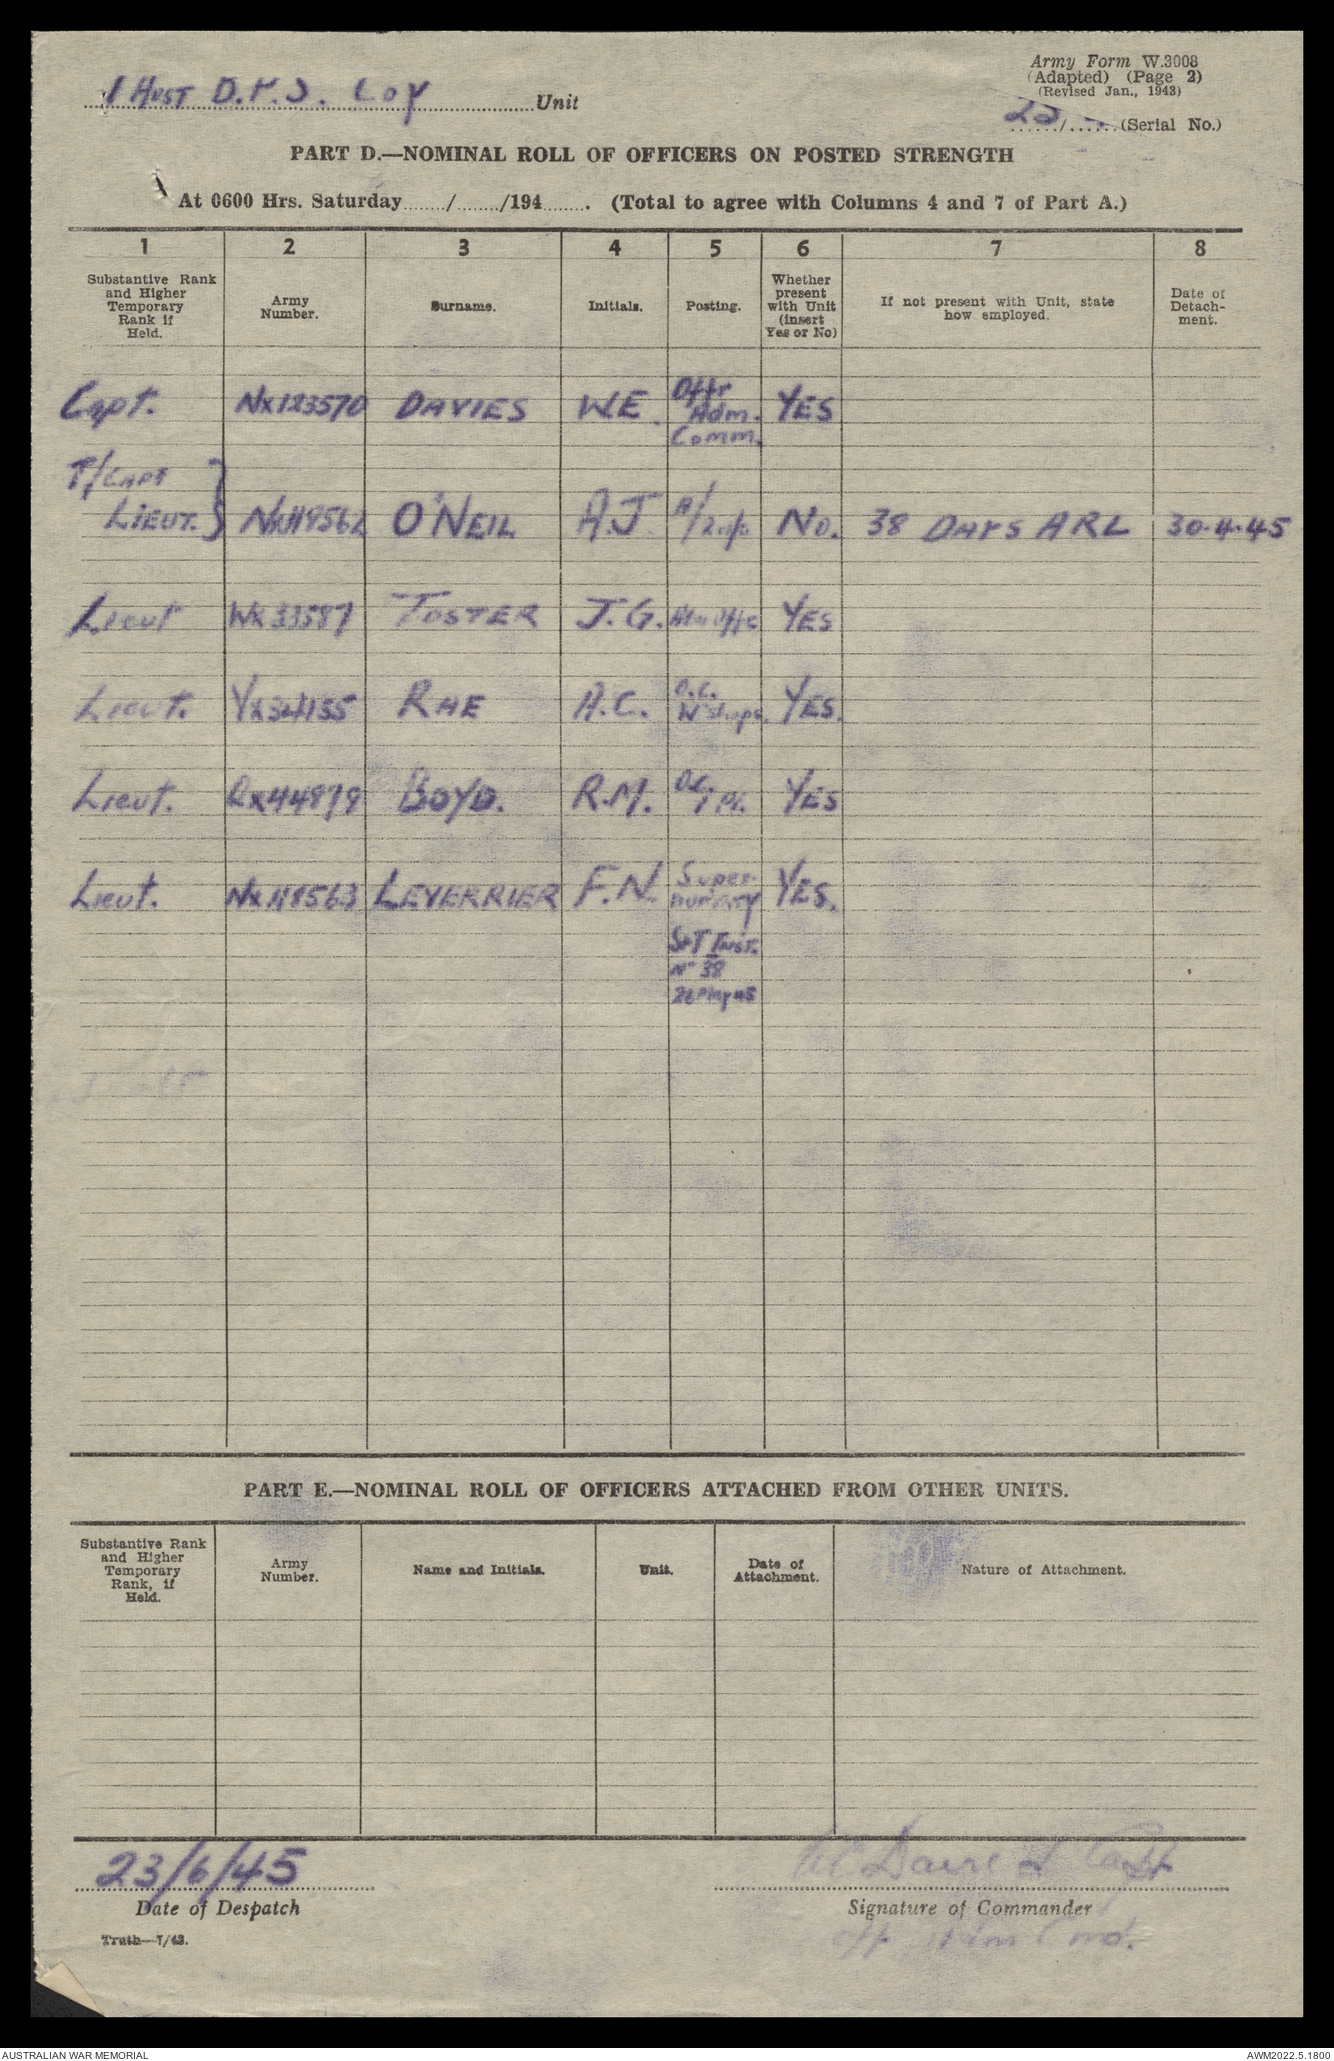 Army Form W.3008
(Adapted) (Page 2)
(Revised Jan., 1943)
1 AUST D.P.S. COY Unit
....../...... (Serial No.)
PART D.—NOMINAL ROLL OF OFFICERS ON POSTED STRENGTH
At 0600 Hrs. Saturday......./......./194....... (Total to agree with Columns 4 and 7 of Part A.)
1 2 3 4 5 6 7 8
Substantive Rank and Higher Temporary Rank if Held. Army Number. Surname. Initials. Posting. Whether present with Unit (insert Yes or No) If not present with Unit, state how employed. Date of Detach-ment.
Capt. NX123570 DAVIES W.E. Offr Adm. Comm. YES
T/Capt
Lieut. } O'NEIL A.J. NO. 38 DAYS ARL 30.4.45
Lieut WX33587 J.G. YES
Lieut. RAE A.C. O.C. W'shops. YES.
Lieut. QX44879 BOYD. R.M. YES
Lieut. NX118563 LEVERRIER F.N. Super-numery YES.
S+T Inst.
No 38
26 May 45
PART E.—NOMINAL ROLL OF OFFICERS ATTACHED FROM OTHER UNITS.
Substantive Rank and Higher Temporary Rank, if Held. Army Number. Name and Initials. Unit. Date of Attachment. Nature of Attachment.
23/6/45 Capt
Date of Despatch Signature of Commander
Truth—7/43.
AUSTRALIAN WAR MEMORIAL AWM2022.5.1800